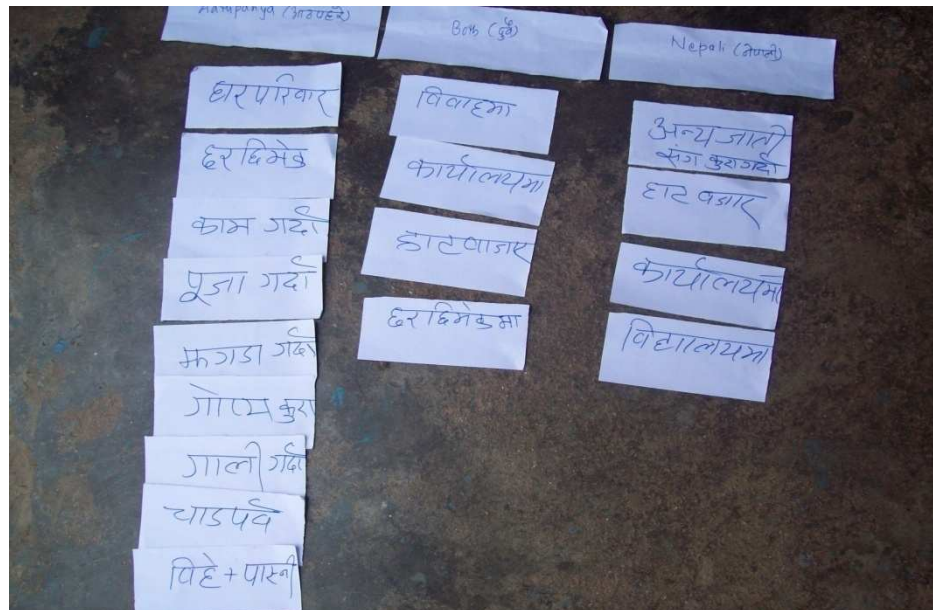 Athpahariya (आठपहरे)
घर परिवार
छर छिमेक
काम गर्दा
पूजा गर्दा
झगडा गर्दा
गोप्य कुरा
गाली गर्दा
चाडपर्व
विहे + पास्नी
Both (दुवै)
विवाहमा
कार्यालयमा
हाटवाजार
छर छिमेकमा
Nepali (नेपाली)
अन्य जाती
संग कुरा गर्दा
हाट बजार
कार्यालयमा
विद्यालयमा